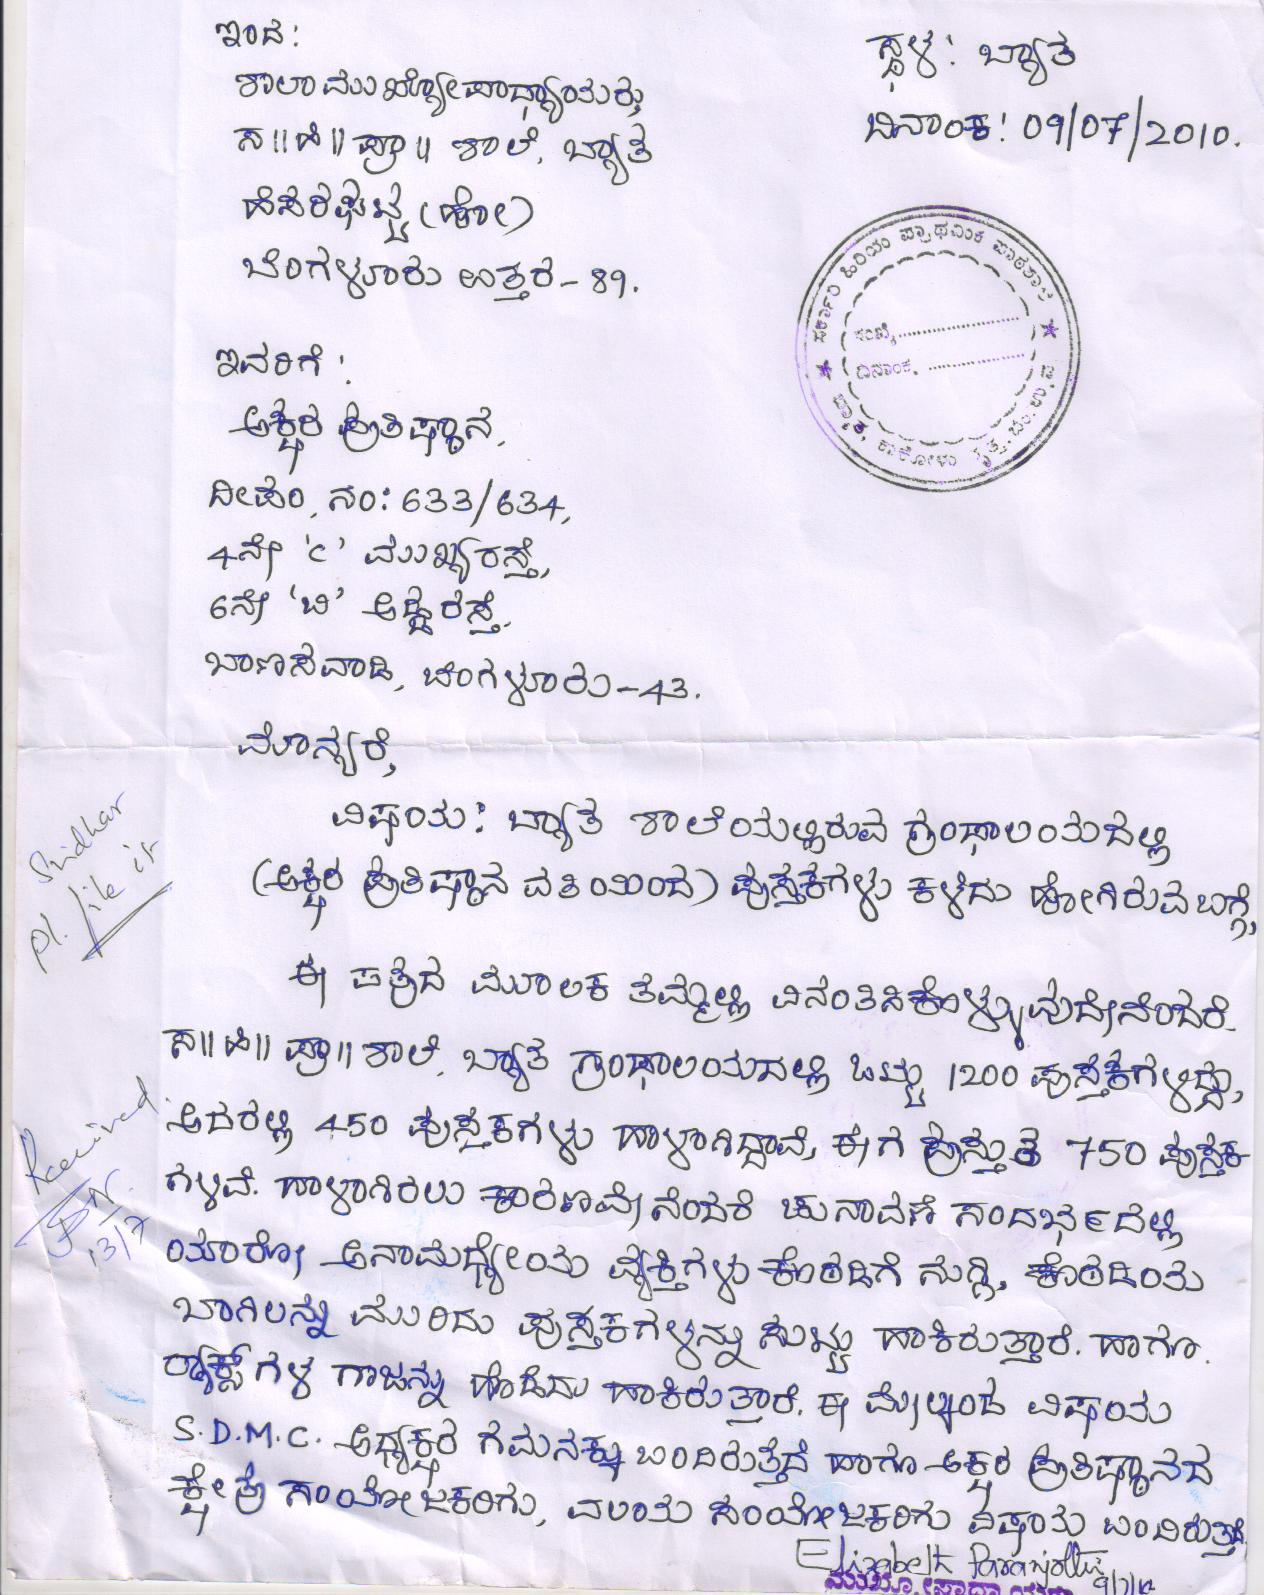 ಇಂದ:
ಶಾಲಾ ಮುಖ್ಯೋಪಾಧ್ಯಾಯರು,
ಸ॥ಹಿ॥ಪ್ರಾ॥ ಶಾಲೆ, ಬ್ಯಾತ
ಹೆಸರಘಟ್ಟ (ಹೋ)
ಬೆಂಗಳೂರು ಉತ್ತರ - 89.
ಸ್ಥಳ: ಬ್ಯಾತ
ದಿನಾಂಕ: 09/07/2010.
ಸರ್ಕಾರಿ ಹಿರಿಯ ಪ್ರಾಥಮಿಕ ಪಾಠಶಾಲೆ
ಸಂಖ್ಯೆ
ದಿನಾಂಕ.
ಬ್ಯಾತ, ಕಾಕೋಳು ವೃತ್ತ, ಬೆಂ.ಉ.ವ
ಇವರಿಗೆ:
ಅಕ್ಷರ ಪ್ರತಿಷ್ಠಾನ,
ನಂ: 633/634,
4ನೇ 'c' ಮುಖ್ಯರಸ್ತೆ,
6ನೇ 'ಬಿ' ಅಡ್ಡರಸ್ತೆ,
ಬಾಣಸವಾಡಿ, ಬೆಂಗಳೂರು - 43.
ಮಾನ್ಯರೆ,
ವಿಷಯ: ಬ್ಯಾತ ಶಾಲೆಯಲ್ಲಿರುವ ಗ್ರಂಥಾಲಯದಲ್ಲಿ
(ಅಕ್ಷರ ಪ್ರತಿಷ್ಠಾನ ವತಿಯಿಂದ) ಪುಸ್ತಕಗಳು ಕಳೆದು ಹೋಗಿರುವ ಬಗ್ಗೆ,
Shidhar
pl. file it
ಈ ಪತ್ರದ ಮೂಲಕ ತಮ್ಮಲ್ಲಿ ವಿನಂತಿಸಿಕೊಳ್ಳುವುದೇನೆಂದರೆ
ಸ॥ಹಿ॥ಪ್ರಾ॥ಶಾಲೆ, ಬ್ಯಾತ ಗ್ರಂಥಾಲಯದಲ್ಲಿ ಒಟ್ಟು 1200 ಪುಸ್ತಕಗಳಿದ್ದು,
ಅದರಲ್ಲಿ 450 ಪುಸ್ತಕಗಳು ಹಾಳಾಗಿದ್ದಾವೆ, ಈಗ ಪ್ರಸ್ತುತ 750 ಪುಸ್ತಕ
ಗಳಿವೆ. ಹಾಳಾಗಿರಲು ಕಾರಣವೇನೆಂದರೆ ಚುನಾವಣೆ ಸಂದರ್ಭದಲ್ಲಿ
ಯಾರೋ ಅನಾಮಧೇಯ ವ್ಯಕ್ತಿಗಳು ಕೊಠಡಿಗೆ ನುಗ್ಗಿ, ಕೊಠಡಿಯ
ಬಾಗಿಲನ್ನು ಮುರಿದು ಪುಸ್ತಕಗಳನ್ನು ಸುಟ್ಟು ಹಾಕಿರುತ್ತಾರೆ. ಹಾಗೂ
ರ‍್ಯಾಕ್ಸ್ ಗಳ ಗಾಜನ್ನು ಹೊಡೆದು ಹಾಕಿರುತ್ತಾರೆ. ಈ ಮೇಲ್ಕಂಡ ವಿಷಯ
S.D.M.C. ಅಧ್ಯಕ್ಷರ ಗಮನಕ್ಕೂ ಬಂದಿರುತ್ತದೆ ಹಾಗೂ ಅಕ್ಷರ ಪ್ರತಿಷ್ಠಾನದ
ಕ್ಷೇತ್ರ ಸಂಯೋಜಕರಿಗು, ವಲಯ ಸಂಯೋಜಕರಿಗು ವಿಷಯ ಬಂದಿರುತ್ತದೆ.
Received
13/7
Elizabeth Paranjothi
9/7/10
ಮುಖ್ಯೋಪಾಧ್ಯಾಯರು